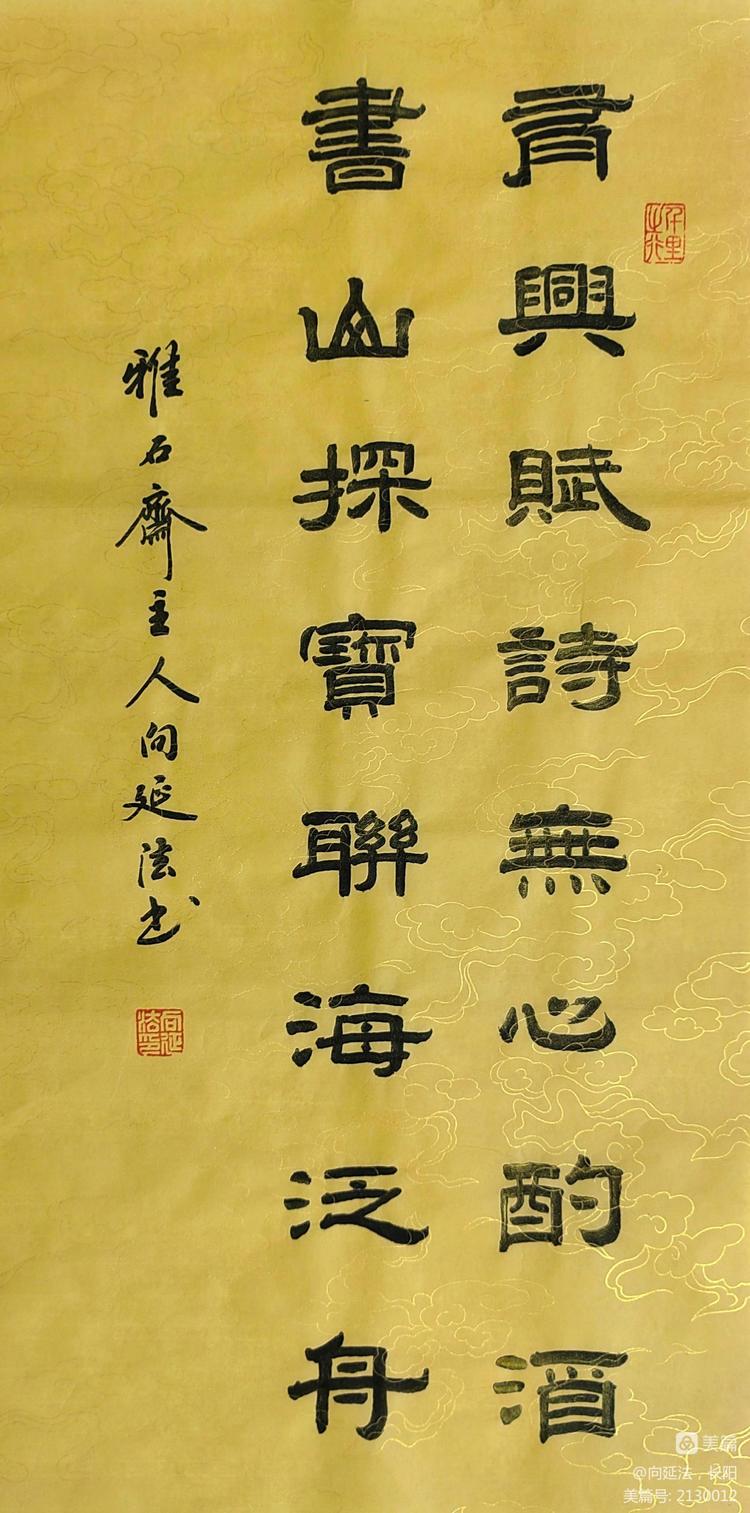 有興賦詩無心酌酒
書山探寶聯海泛舟
雅石齋主人向延法书
千里之行
向延法印
美篇
@向延法，长阳
美篇号: 2130012